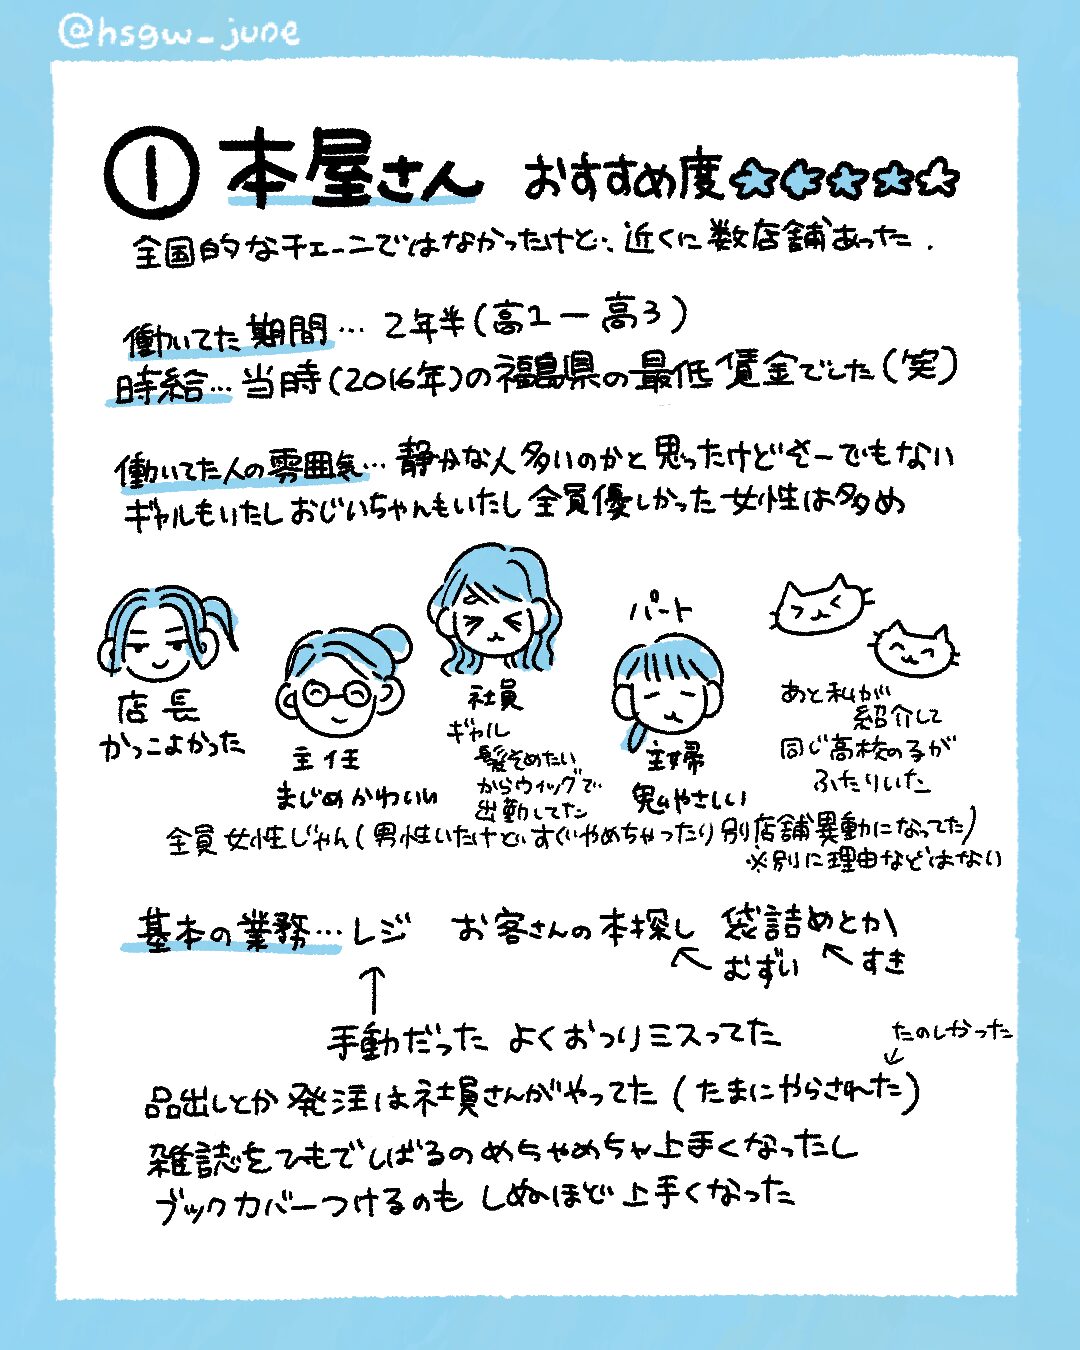 @hsgw_june
① 本屋さん おすすめ度★★★★☆
全国的なチェーンではなかったけど、近くに数店舗あった.
働いてた期間… 2年半(高1ー高3)
時給…当時(2016年)の福島県の最低賃金でした(笑)
働いてた人の雰囲気…静かな人多いのかと思ったけどそーでもない
ギャルもいたしおじいちゃんもいたし全員優しかった 女性は多め
店長
かっこよかった
主任
まじめかわいい
社員
ギャル
髪そめたい
からウィッグで
出勤してた
パート
主婦
鬼やさしい
あと私が
紹介して
同じ高校の子が
ふたりいた
全員女性じゃん(男性いたけどすぐやめちゃったり別店舗異動になってた)
※別に理由などはない
基本の業務…レジ お客さんの本探し 袋詰めとか
むずい
すき
手動だった よくおつりミスってた
たのしかった
品出しとか発注は社員さんがやってた(たまにやらされた)
雑誌をひもでしばるのめちゃめちゃ上手くなったし
ブックカバーつけるのも しぬほど上手くなった